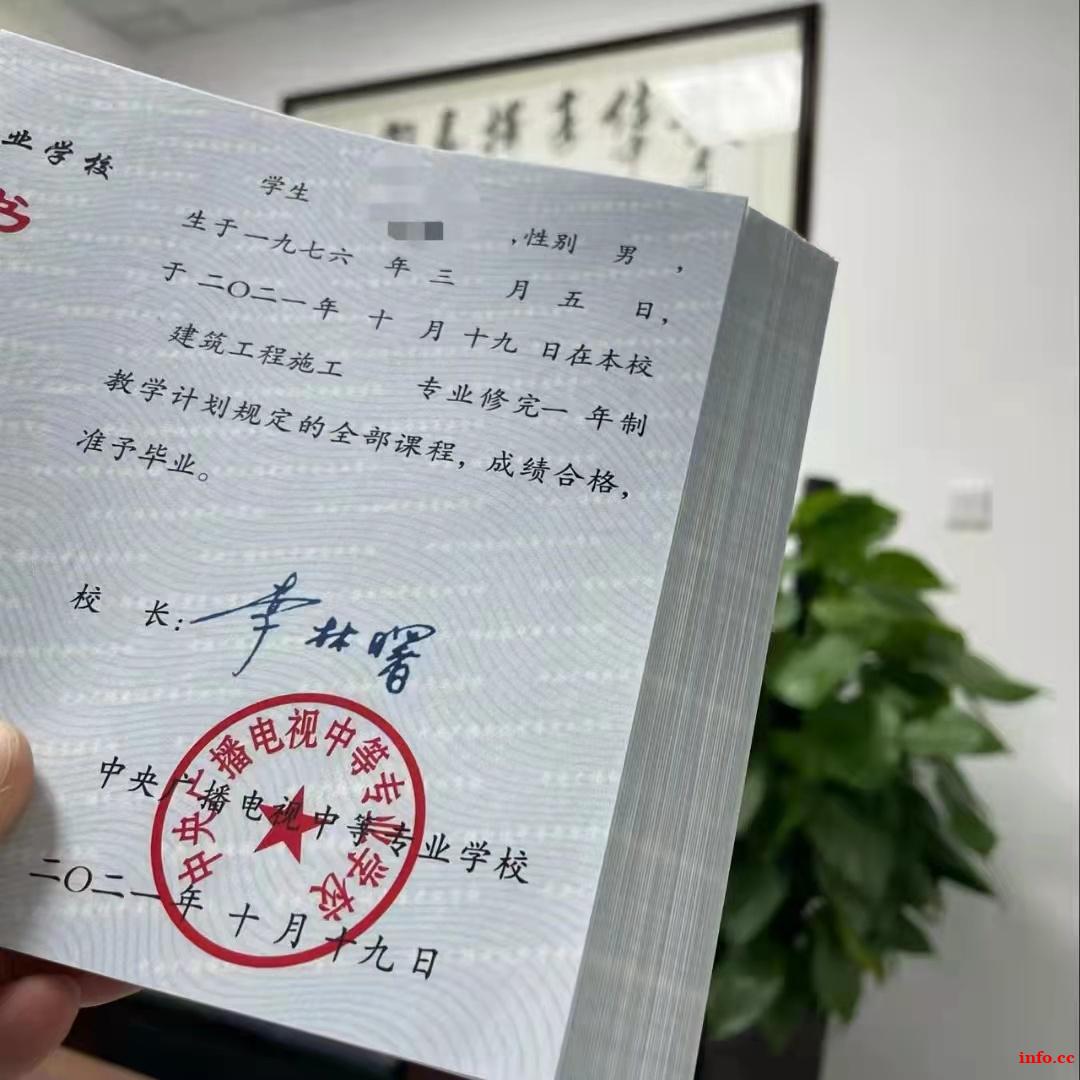 业学校
书
学生
生于一九七六 年 三 月 五 日，
，性别 男 ，
于 二〇二一 年 十 月 十九 日在本校
建筑工程施工 专业修完一 年制
教学计划规定的全部课程，成绩合格，
准予毕业。
校 长：李林曙
中央广播电视中等专业学校
中央广播电视中等专业学校
二〇二一年 十 月 十九日
info.cc